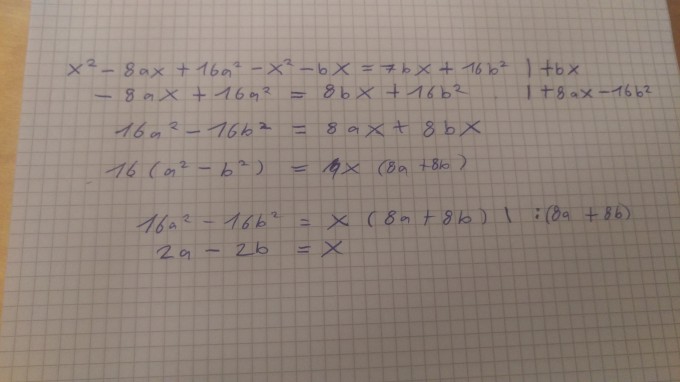 x² - 8ax + 16a² - x² - bx = 7bx + 16b² | +bx
- 8ax + 16a² = 8bx + 16b² | + 8ax - 16b²
16a² - 16b² = 8ax + 8bx
16(a² - b²) = x (8a + 8b)
16a² - 16b² = x (8a + 8b) | :(8a + 8b)
2a - 2b = x